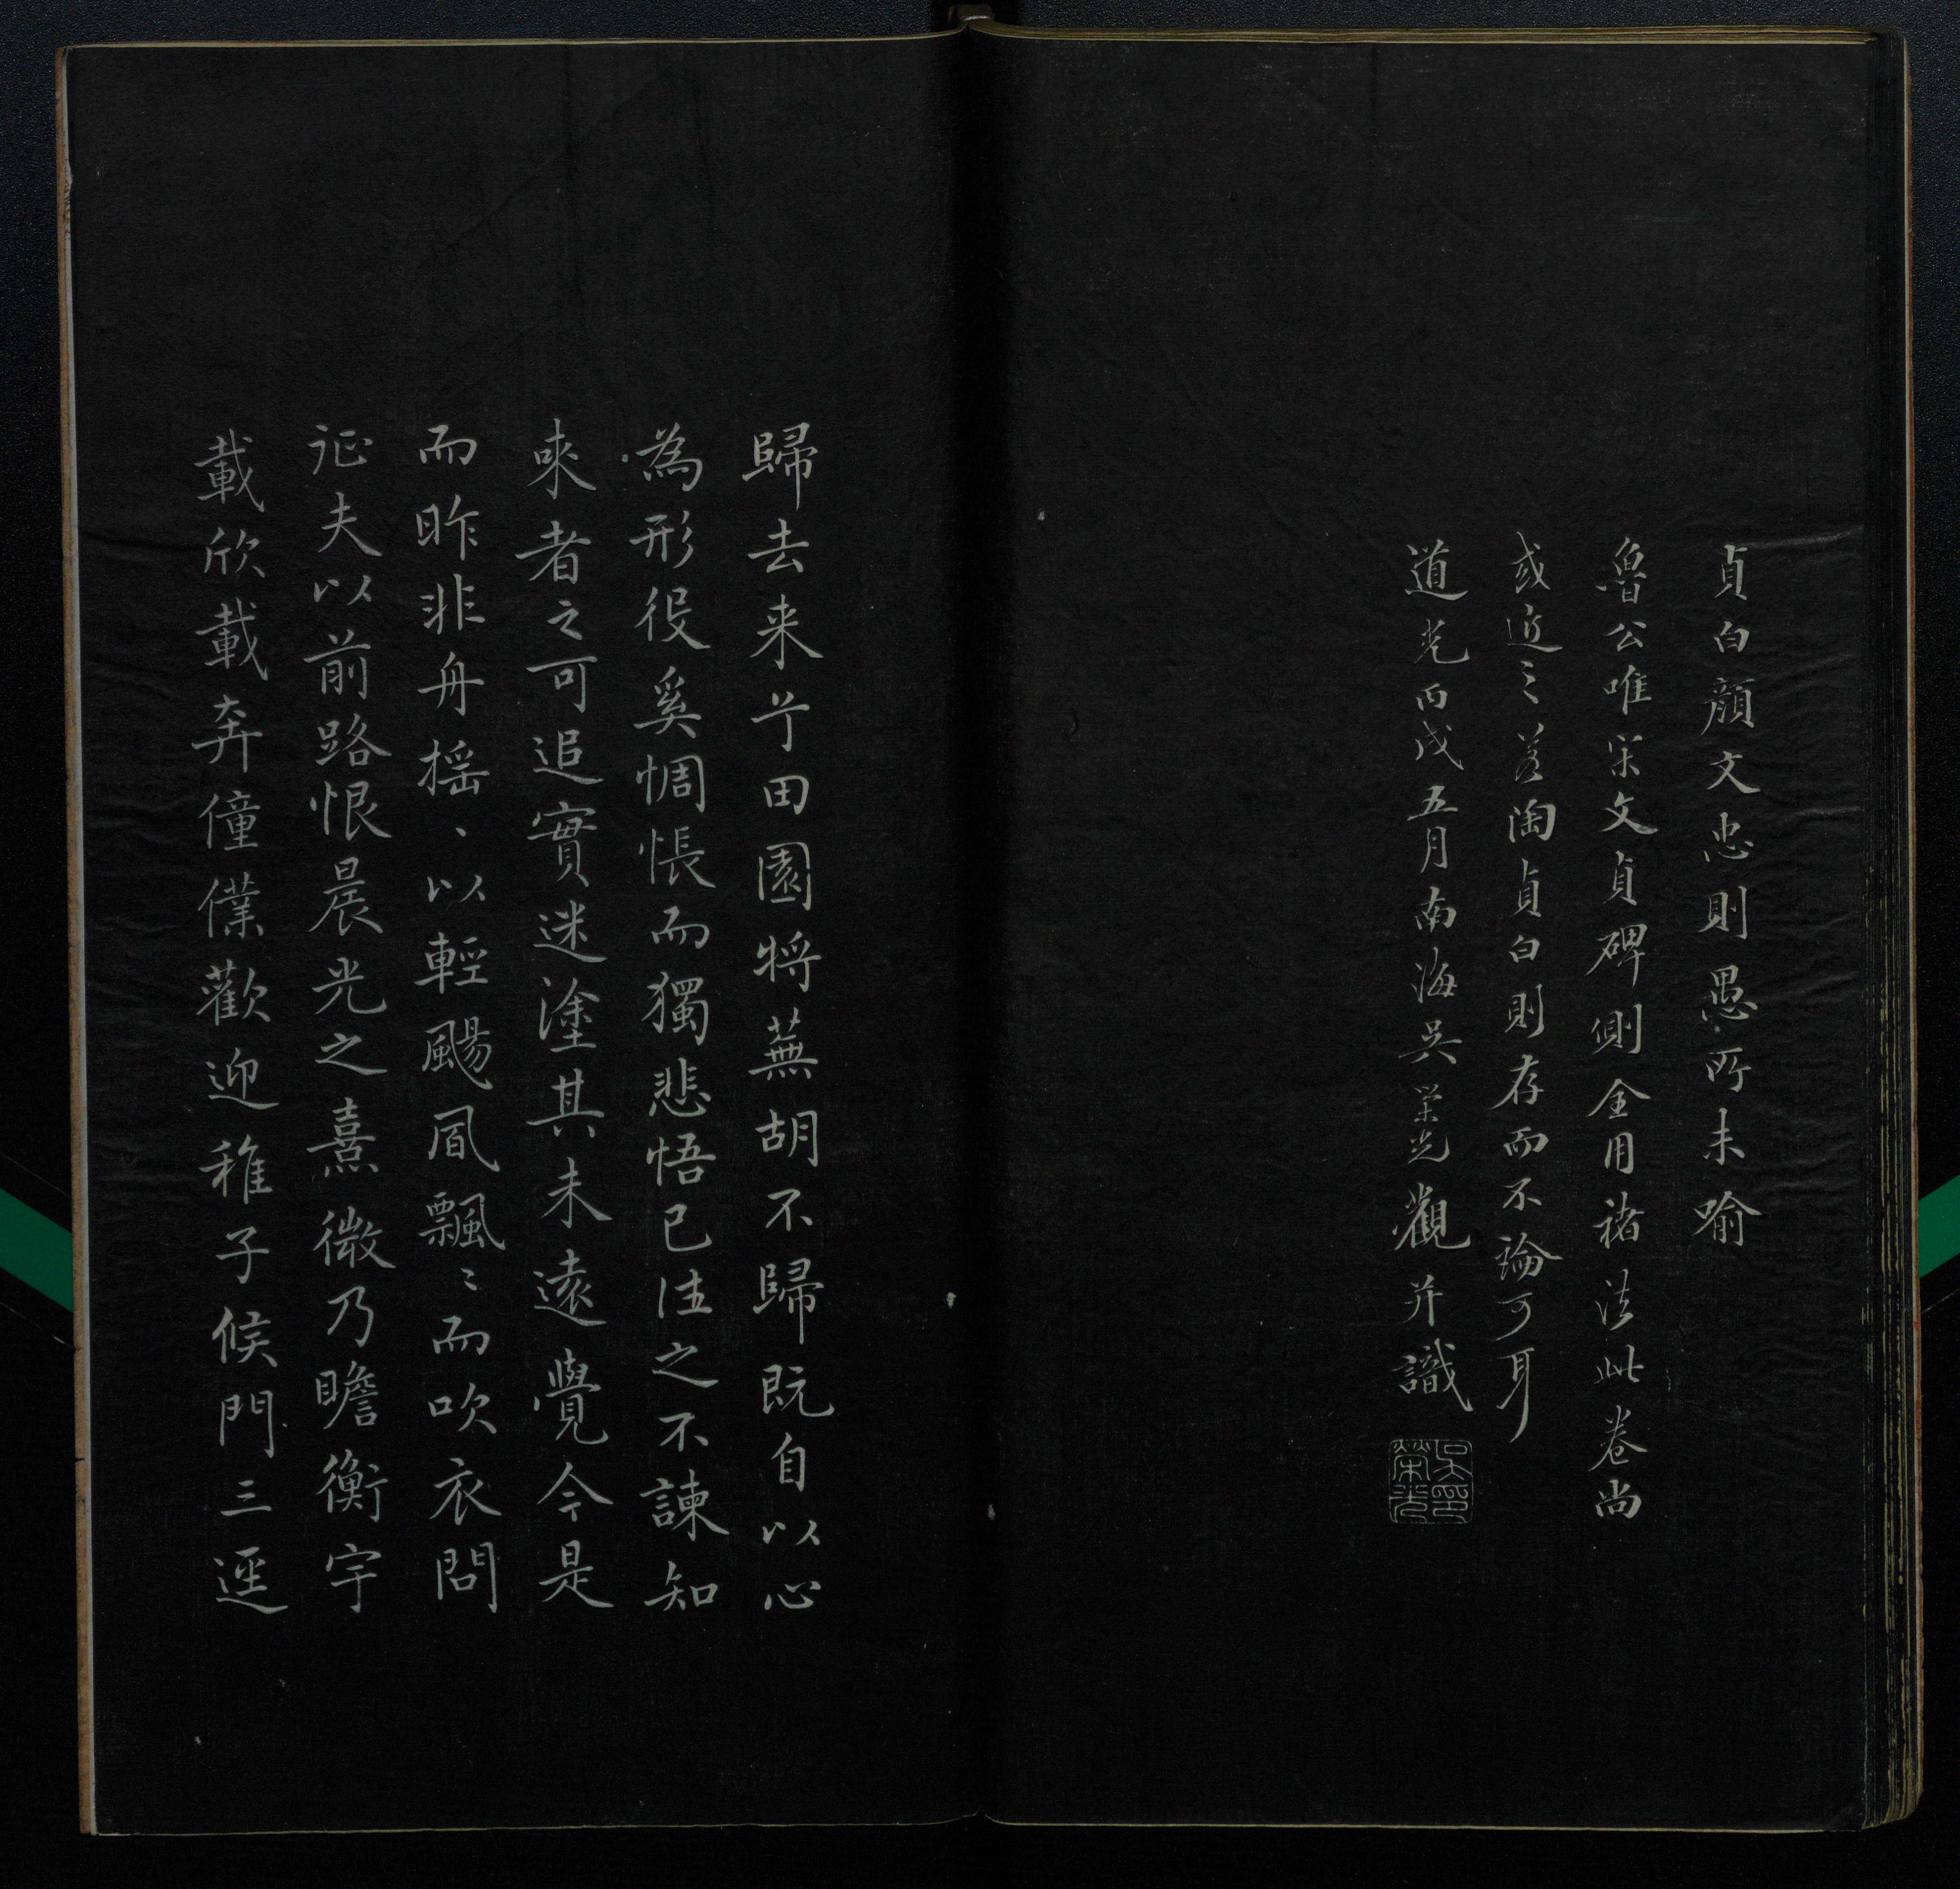 貞白顏文忠則愚所未喻
魯公唯宋文貞碑側全用褚法此卷尚
或近之若陶貞白則存而不論可耳
道光丙戌五月南海吳榮光觀并識
吳榮光印
歸去来兮田園將蕪胡不歸既自以心
為形役奚惆悵而獨悲悟已往之不諫知
來者之可追實迷塗其未遠覺今是
而昨非舟搖〻以輕颺風飄〻而吹衣問
征夫以前路恨晨光之熹微乃瞻衡宇
載欣載奔僮僕歡迎稚子候門三逕